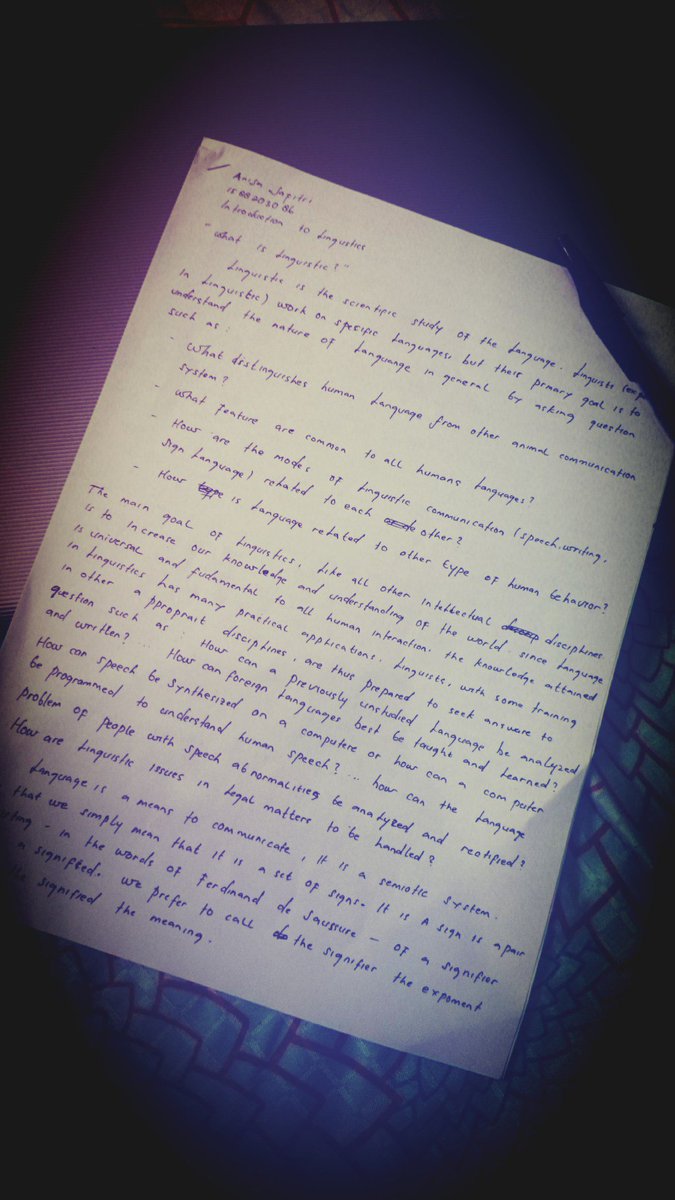 Anisa Sapitri
Introduction to Linguistics
"What is Linguistic?"
Linguistic is the scientific study of the Language. Linguists (exp
in Linguistic) work on spesific Languages, but their prmary goal is to
understand the nature of Languange in general by asking question
such as :
- What distinguishes human Language from other animal communication
system?
- What Feature are common to all humans Languages?
- How are the modes of Linguistic communication (speech, writing,
sign Language) rehated to each other?
- How is Language rehated to other type of human behavior?
The main goal of Linguistics, like all other intellectual disciplines
is to increase our knowledge and understanding of the world. since Language
is universal and fudamental to all human interaction. the knowledge attained
in Linguistics has many practical applications. Linguists, with some training
in other appropriat disciplines, are thus prepared to seek answare to
question such as : How can a previously unstudied Language be analyzed
and written? ... How can foreign Languages best be taught and Learned?
How can speech be synthesized on a computere or how can a computer
be programmed to understand human speech? ... how can the Language
problem of people with speech abnormalities be analyzed and rectified?
How are Linguistic issues in Legal matters to be handled?
Language is a means to communicate, it is a semiotic system.
that we simply mean that it is a set of signs. It is A sign is a pair
- in the words of Ferdinand de Saussure - of a signifier
a signified. We prefer to call the signifier the exponent
signified the meaning.